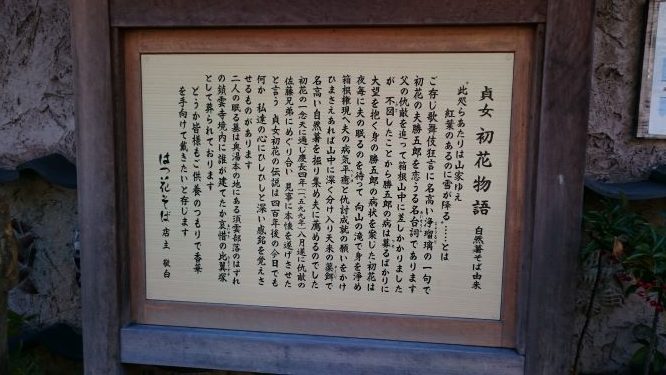 貞女 初花物語 自然薯そば由来
〝此処らあたりは山家ゆえ
紅葉のあるのに雪が降る……とは
ご存じ歌舞伎狂言に名高い浄瑠璃の一句で
初花の夫勝五郎を恋うる名台詞であります
父の仇敵を追って箱根山中に差しかかりました
が 不図したことから勝五郎の病は募るばかりに
大望を抱く身の勝五郎の病状を案じた初花は
夜毎に夫の眠るのを待って 向山の滝で身を浄め
箱根権現へ夫の病気平癒と仇討成就の願いをかけ
ひまさえあれば山中に深く分け入り天来の薬餌で
名高い自然薯を掘り集め夫に薦めるのでした
初花の一念天に通じ慶長四年(一五九九年)八月遂に仇敵の
佐藤兄弟にめぐり合い 見事に本懐を遂げさせた
と言う 貞女初花の伝説は四百年後の今日でも
何か 私達の心にひしひしと深い感銘を覚えさ
せるものがあります
二人の眠る墓は奥湯本の地にある須雲部落のはずれ
の鎖雲寺境内に誰が建てたか哀惜の比翼塚
として葬られております
どうか皆様もご供養のつもりで香華
を手向けて戴きたいと存じます
はつ花そば 店主 敬白